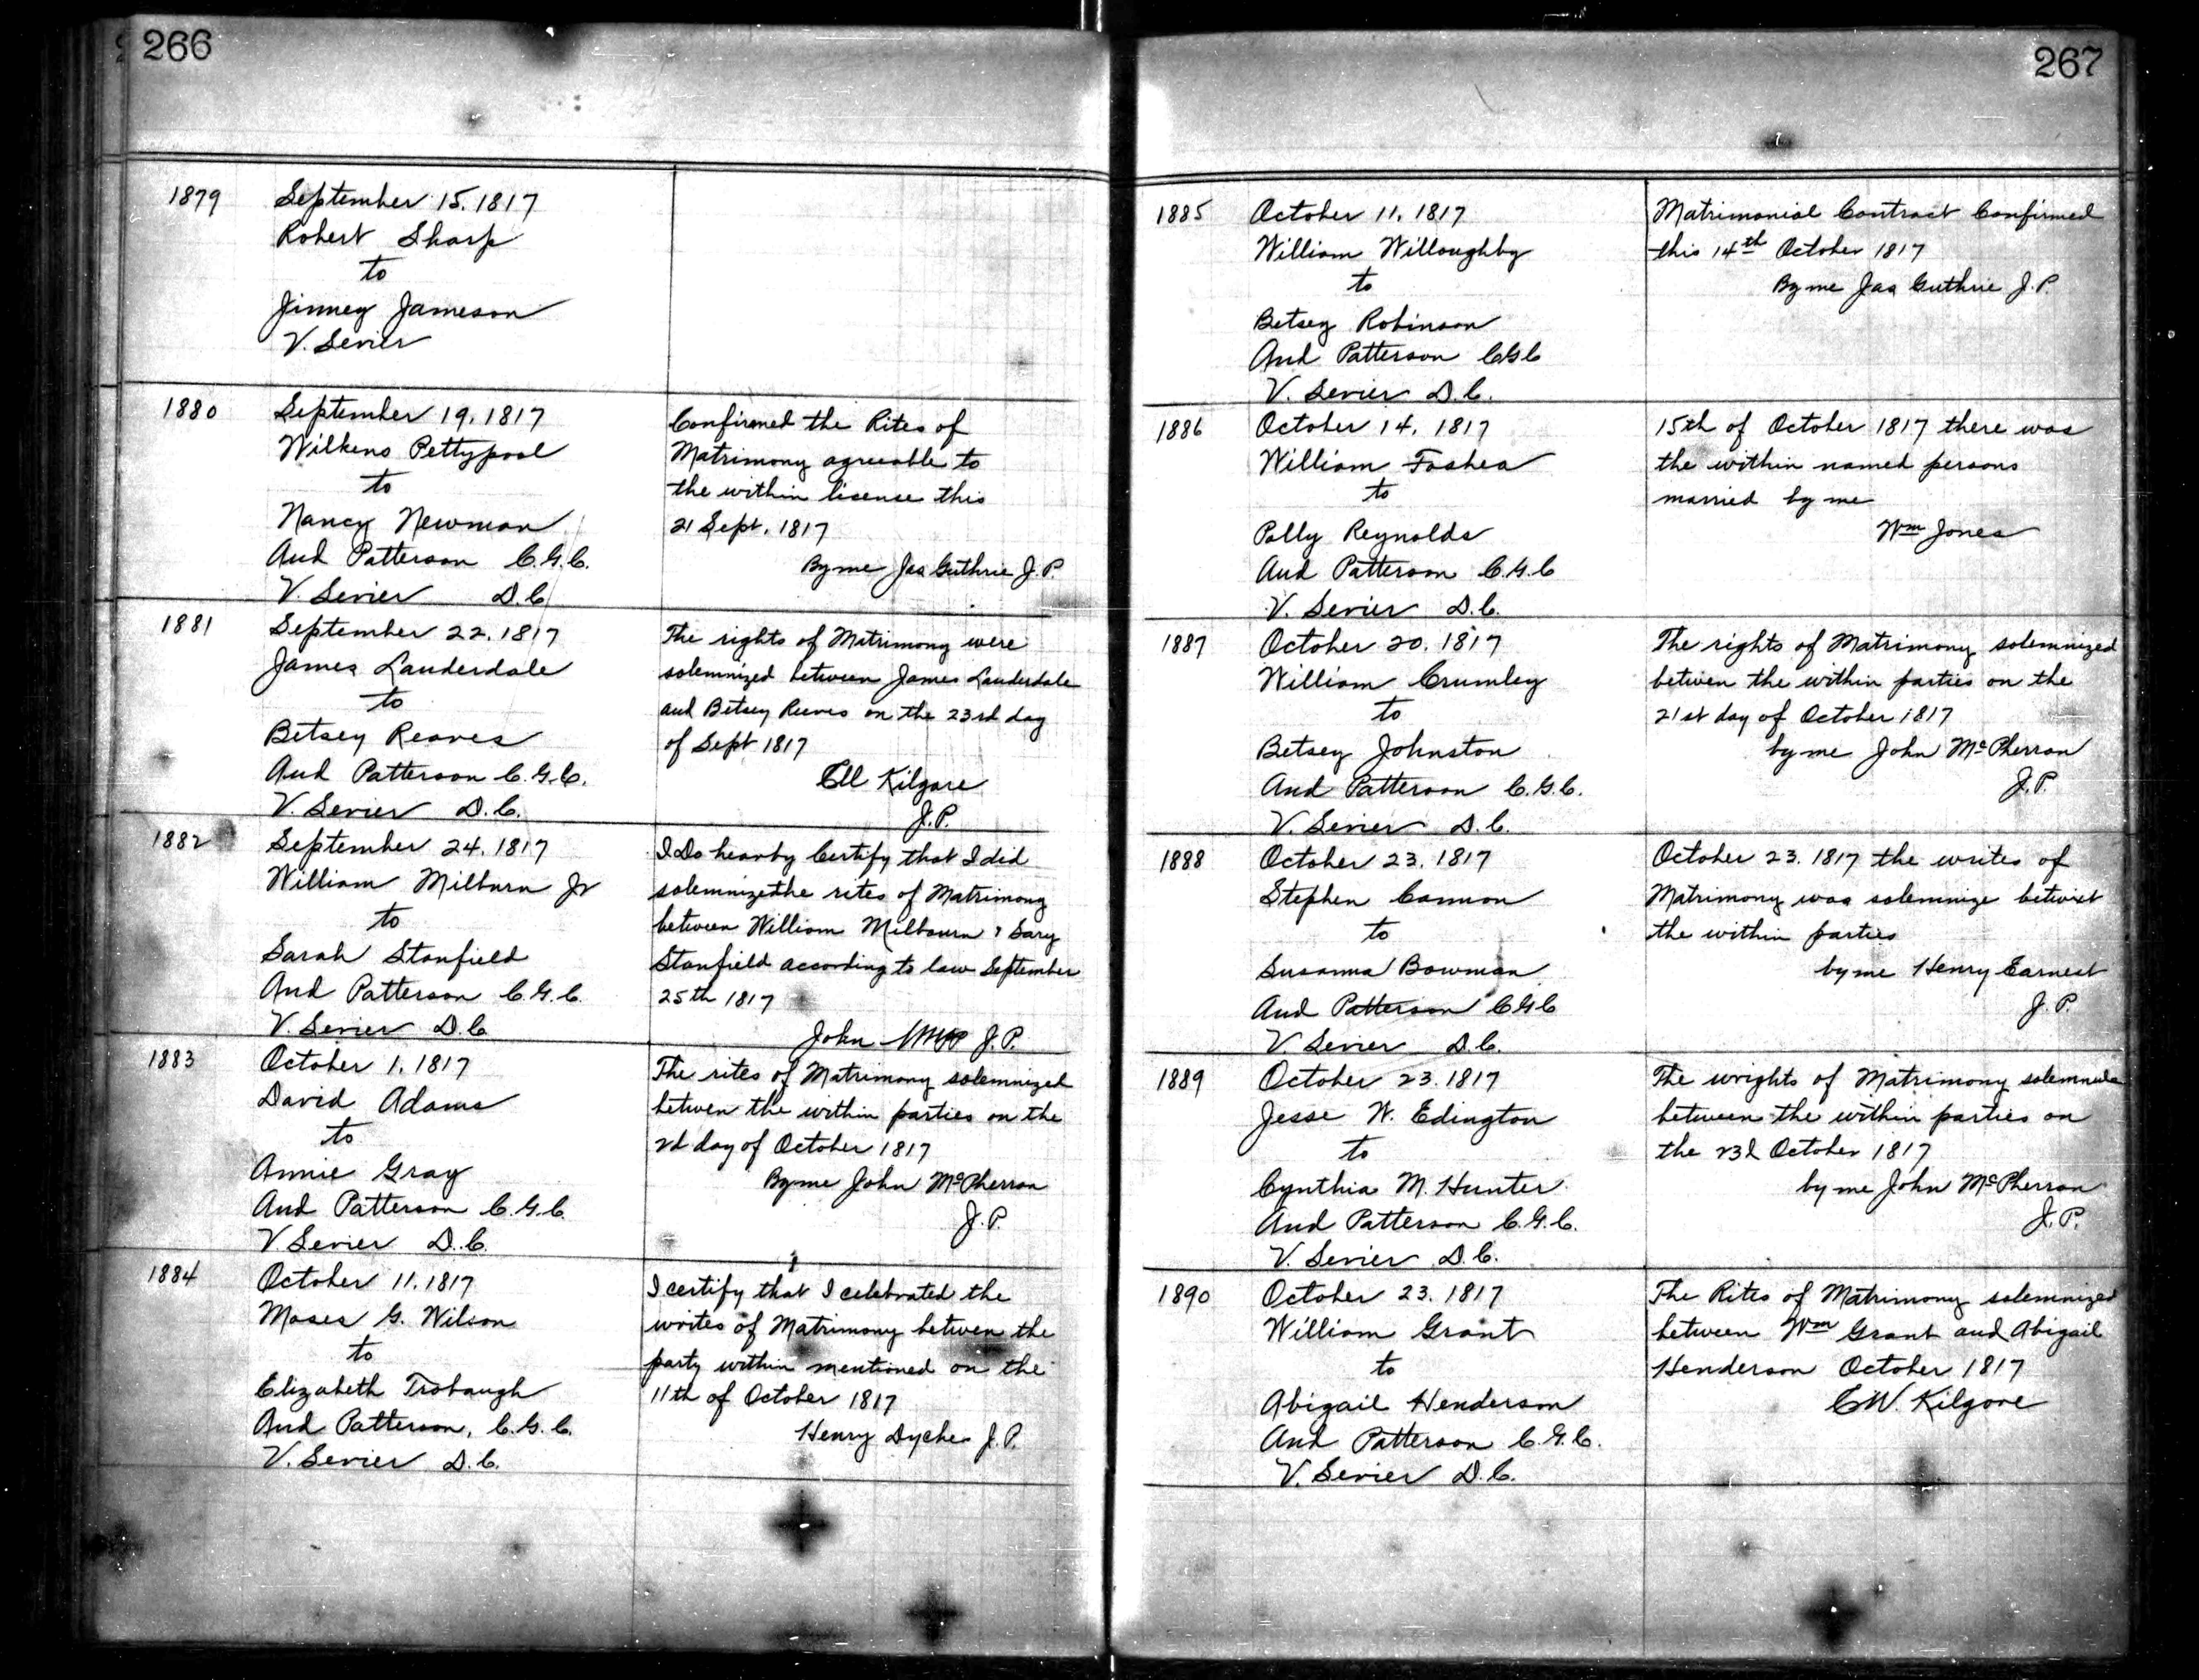 266
1879
September 15. 1817
Robert Sharp
to
Jinney Jameson
V. Sevier
1880
September 19. 1817
Wilkens Pettypool
to
Nancy Newman
And Patterson C.G.C.
V. Sevier D.C.
Confirmed the Rites of
Matrimony agreeable to
the within license this
21 Sept. 1817
By me Jas Guthrie J.P.
1881
September 22. 1817
James Lauderdale
to
Betsey Reaves
And Patterson C.G.C.
V. Sevier D.C.
The rights of Matrimony were
solemnized between James Lauderdale
and Betsey Reeves on the 23rd day
of Sept 1817
Kilgore
J.P.
1882
September 24. 1817
William Milburn Jr
to
Sarah Stanfield
And Patterson C.G.C.
V. Sevier D.C
I Do hearby Certify that I did
solemnize the rites of Matrimony
between William Milbourn & Sary
Stanfield according to law September
25th 1817
John J.P.
1883
October 1. 1817
David Adams
to
Annie Gray
And Patterson C.G.C.
V. Sevier D.C.
The rites of Matrimony solemnized
betwen the within parties on the
2d day of October 1817
By me John McPherron
J.P.
1884
October 11. 1817
Moses G. Wilson
to
Elizabeth Trobaugh
And Patterson, C.G.C.
V. Sevier D.C.
I certify that I celebrated the
writes of Matrimony betwen the
party within mentioned on the
11th of October 1817
Henry Dyche J.P.
267
1885
October 11. 1817
William Willoughby
to
Betsey Robinson
And Patterson CGC
V. Sevier D.C.
Matrimonial Contract Confirmed
this 14th October 1817
By me Jas Guthrie J.P.
1886
October 14. 1817
William Foshea
to
Polly Reynolds
And Patterson C.G.C
V. Sevier D.C.
15th of October 1817 there was
the within named persons
married by me
Wm Jones
1887
October 20. 1817
William Crumley
to
Betsey Johnston
And Patterson C.G.C.
V. Sevier D.C.
The rights of Matrimony solemnized
betwen the within parties on the
21st day of October 1817
by me John McPherron
J.P.
1888
October 23. 1817
Stephen Cannon
to
Susanna Bowman
And Patterson CGC
V. Sevier D.C.
October 23. 1817 the writes of
Matrimony was solemnize betwixt
the within parties
by me Henry Earnest
J.P.
1889
October 23. 1817
Jesse W. Edington
to
Cynthia M. Hunter
And Patterson C.G.C.
V. Sevier D.C.
The wrights of Matrimony
between the within parties on
the 23d October 1817
by me John McPherron
J.P.
1890
October 23. 1817
William Grant
to
Abigail Henderson
And Patterson C.G.C.
V. Sevier D.C.
The Rites of Matrimony solemnized
between Wm Grant and Abigail
Henderson October 1817
C.W. Kilgore